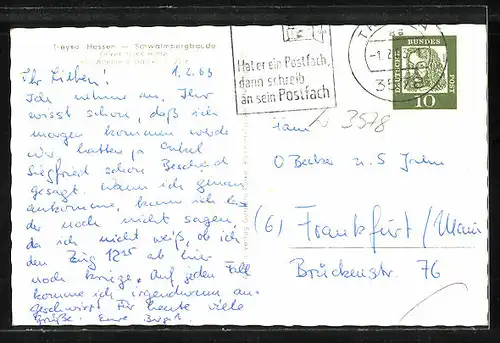 Treysa Hessen – Schwalmbergbaude
Ihr Lieben! 1.2.63
Ich nehme an, Ihr
wisst schon, daß ich
morgen kommen werde
Wir hatten ja Onkel
Siegfried schon Bescheid
gesagt. Wann ich genau
ankomme, kann ich lei
der noch nicht sagen,
da ich nicht weiß, ob ich
den Zug 12¹⁵ ab hier
noch kriege. Auf jeden Fall
komme ich irgendwann an-
geschwirrt. Für heute viele
Grüße. Eure
Hat er ein Postfach,
dann schreib
an sein Postfach
-1.2.
3578
DEUTSCHE BUNDESPOST
10
3578
O Becker u. S
(6) Frankfurt/Main
Brückenstr. 76